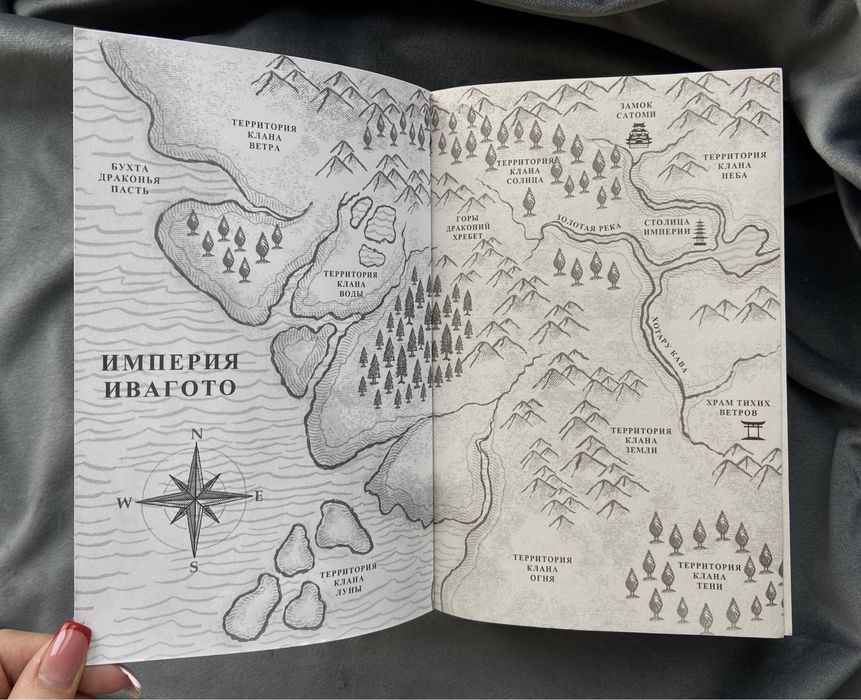 ТЕРРИТОРИЯ
КЛАНА
ВЕТРА
БУХТА
ДРАКОНЬЯ
ПАСТЬ
ТЕРРИТОРИЯ
КЛАНА
ВОДЫ
ИМПЕРИЯ
ИВАГОТО
N
W
E
S
ТЕРРИТОРИЯ
КЛАНА
ЛУНЫ
ЗАМОК
САТОМИ
ТЕРРИТОРИЯ
КЛАНА
СОЛНЦА
ТЕРРИТОРИЯ
КЛАНА
НЕБА
ГОРЫ
ДРАКОНИЙ
ХРЕБЕТ
ЗОЛОТАЯ РЕКА
СТОЛИЦА
ИМПЕРИИ
ХОТАРУ КАВА
ХРАМ ТИХИХ
ВЕТРОВ
ТЕРРИТОРИЯ
КЛАНА
ЗЕМЛИ
ТЕРРИТОРИЯ
КЛАНА
ОГНЯ
ТЕРРИТОРИЯ
КЛАНА
ТЕНИ